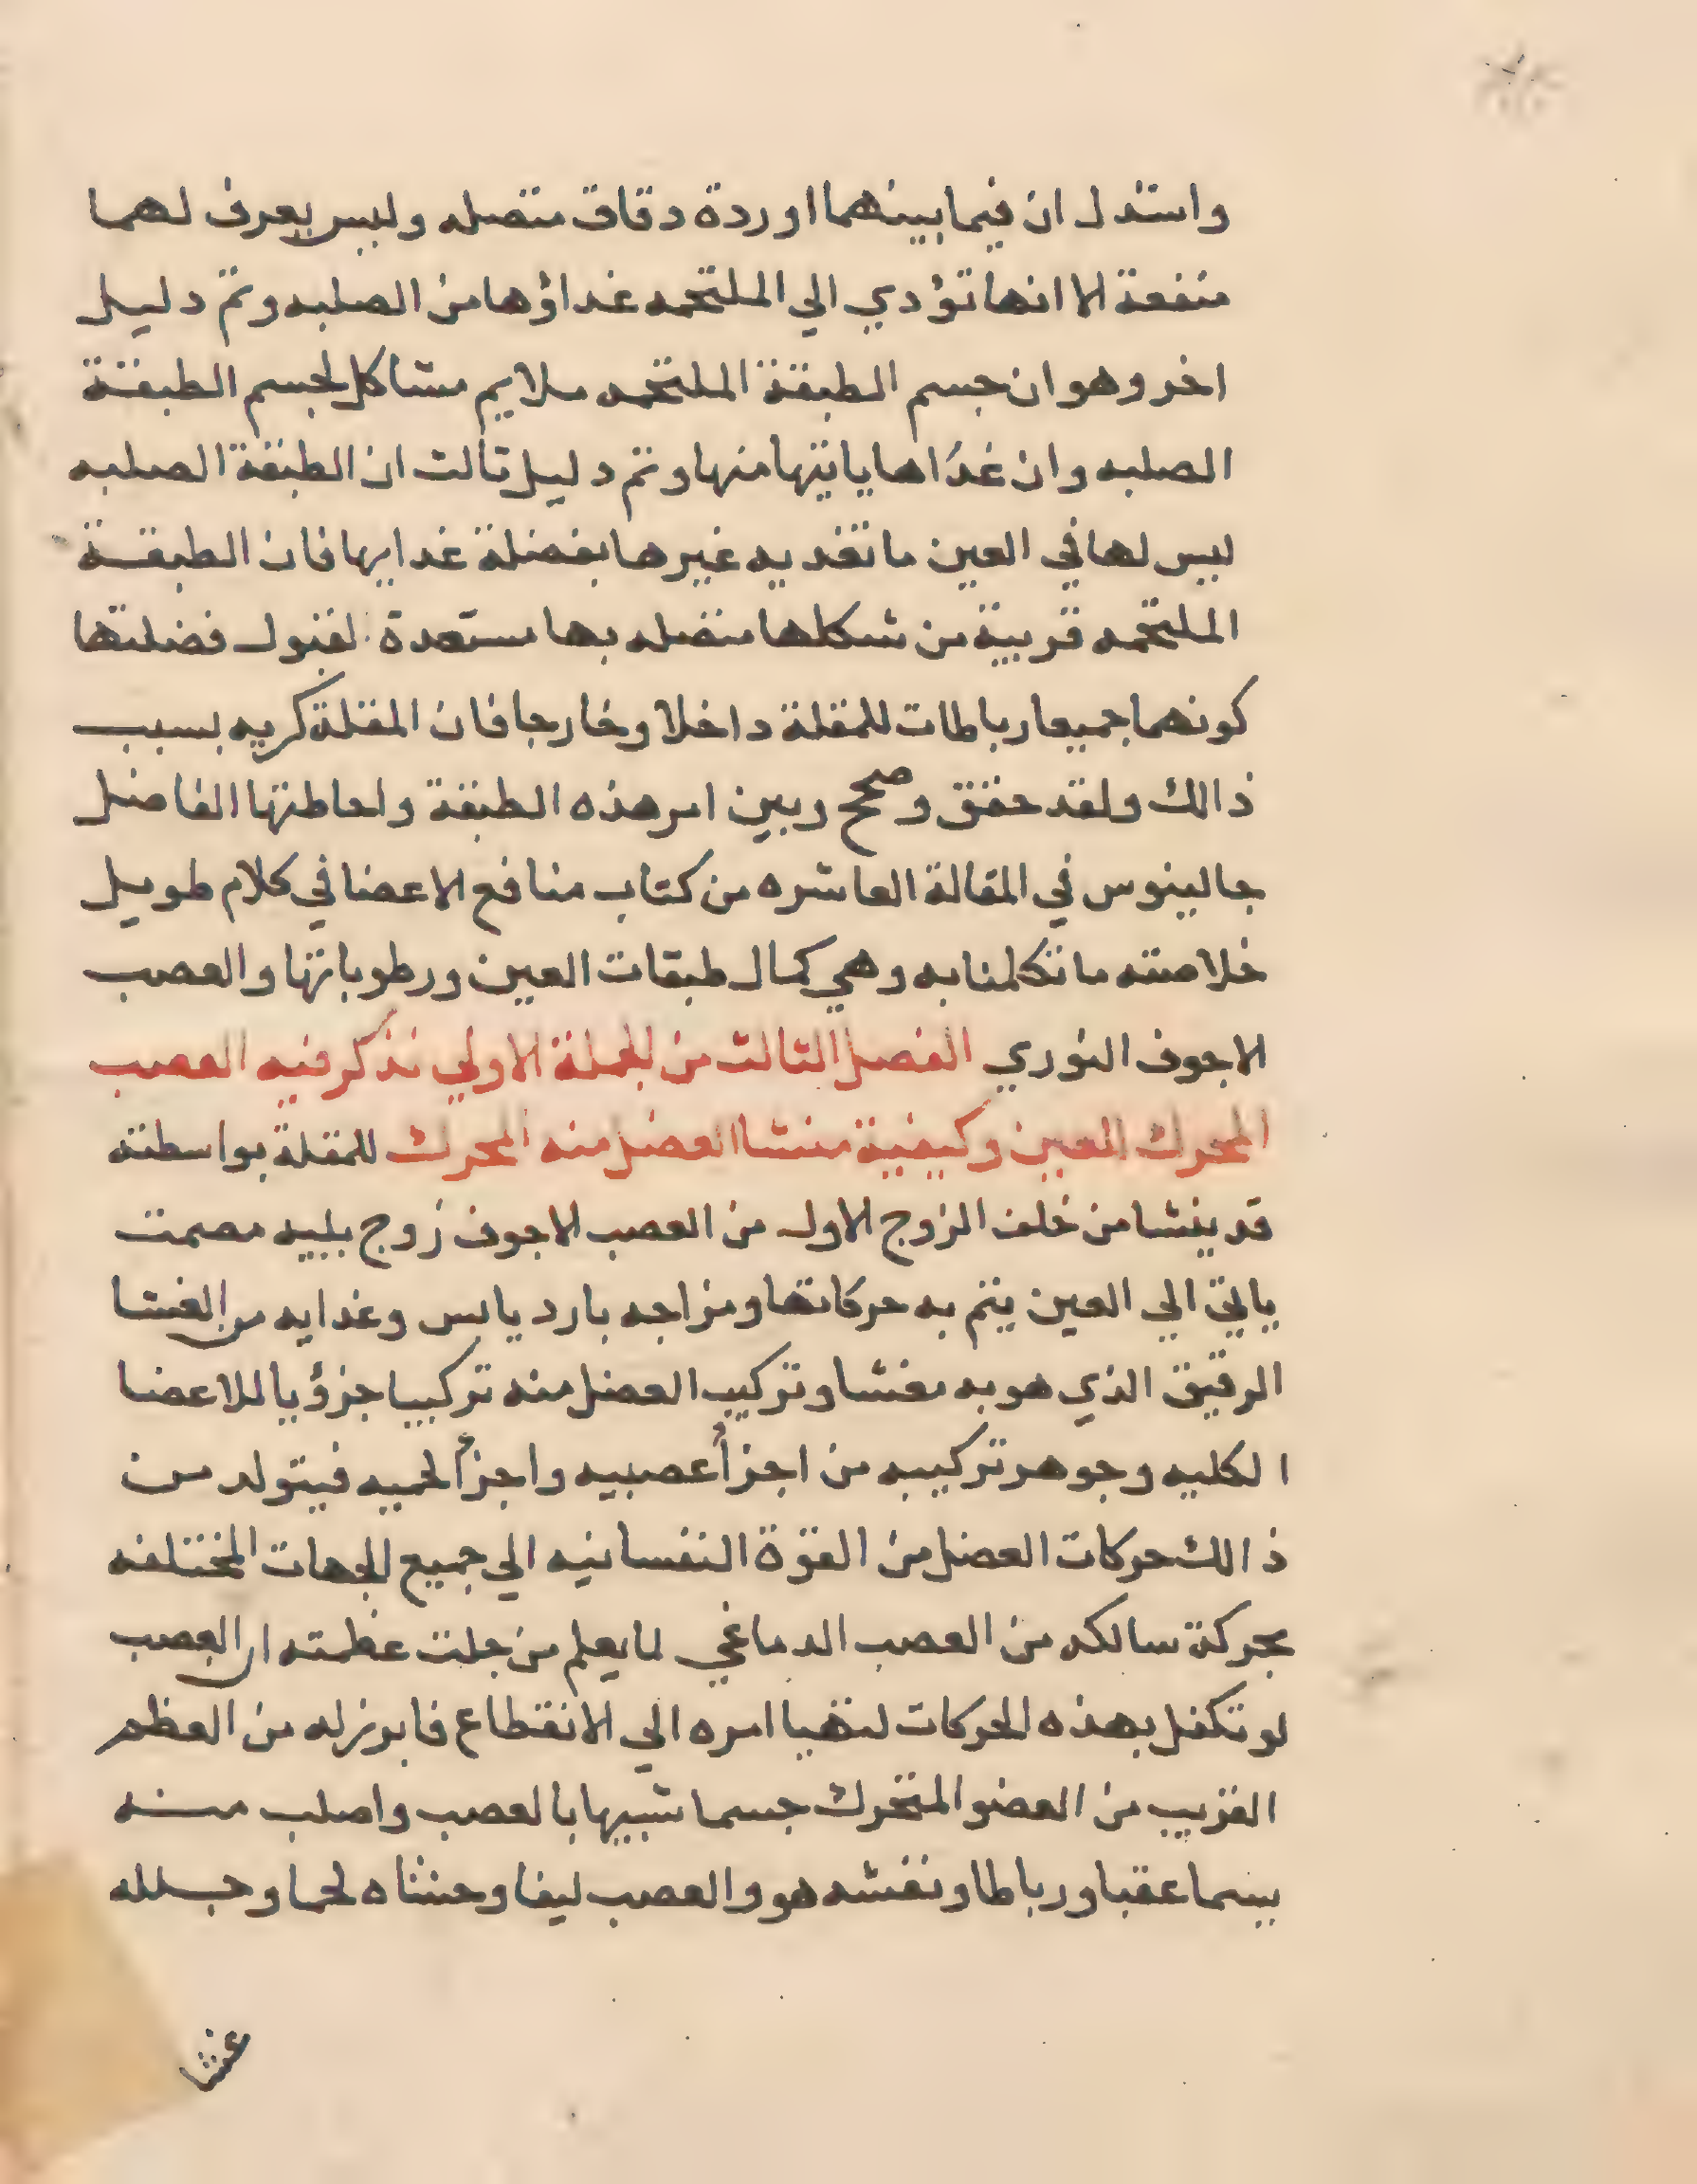 واستدل ان فيما بينهما اوردة دقاق متصله وليس يعرف لهما
منفعة الا انها تؤدي الي الملتحمه غداؤها من الصلبه وتم دليل
اخر وهو ان جسم الطبقة الملتحمه ملايم مشاكل لجسم الطبقة
الصلبه وان غداها ياتيها منها وتم دليل تالت ان الطبقة الصلبه
ليس لها في العين ما تغديه غيرها بفضلة غدايها فان الطبقة
الملتحمه قريبة من شكلها متصله بها مستعدة لقبول فضلتها
كونهما جميعا رباطات للمقلة داخلا وخارجا فان المقلة كريه بسبب
ذالك ولقد حقق وصحح وبين امر هذه الطبقة واحاطتها الفاضل
جالينوس في المقالة العاشره من كتاب منافع الاعضا في كلام طويل
خلاصته ما تكلمنا به وهي كمال طبقات العين ورطوباتها والعصب
الاجوف النوري الفصل الثالث من الجملة الاولي نذكر فيه العصب
المحرك العين وكيفية منشا العضل منه المحرك للمقلة بواسطته
قد ينشا من خلف الزوج الاول من العصب الاجوف زوج يليه مصمت
ياتي الي العين يتم به حركاتها ومزاجه بارد يابس وغدايه من الغشا
الرقيق الذي هو به مغشا وتركيب العضل منه تركيبا جزؤيا للاعضا
الكليه وجوهر تركيبه من اجزأ عصبيه واجزأ لحميه فيتولد من
ذالك حركات العضل من القوة النفسانيه الي جميع الجهات المختلفه
بحركة سالكه من العصب الدماغي لما يعلم من جلت عظمته ان العصب
لو تكفل بهذه الحركات لتهيا امره الي الانقطاع فابرز له من العظم
القريب من العضو المتحرك جسما شبيها بالعصب واصلب منه
يسما عقبا ورباطا ونفشه هو والعصب ليفا وحشاه لحما وجلله
غشا